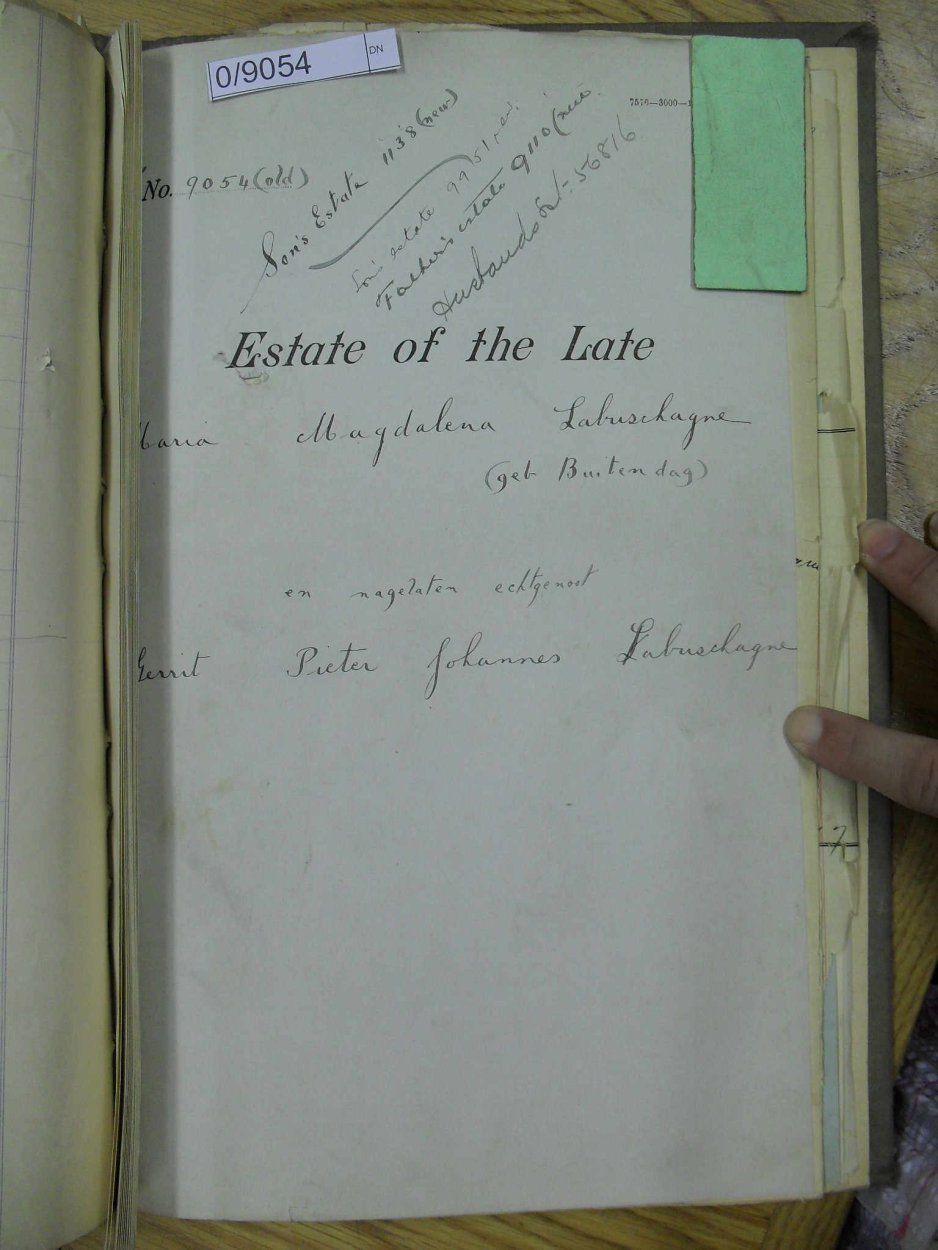 0/9054 DN
7576-3000-1
No. 9054 (old)
Son's Estate 1138 (new)
Son's estate 9951
Father's estate 9110 (new
Husbands Est:- 56816
Estate of the Late
Maria Magdalena Labuschagne
(geb Buitendag)
en nagelaten echtgenoot
Gerrit Pieter Johannes Labuschagne
7